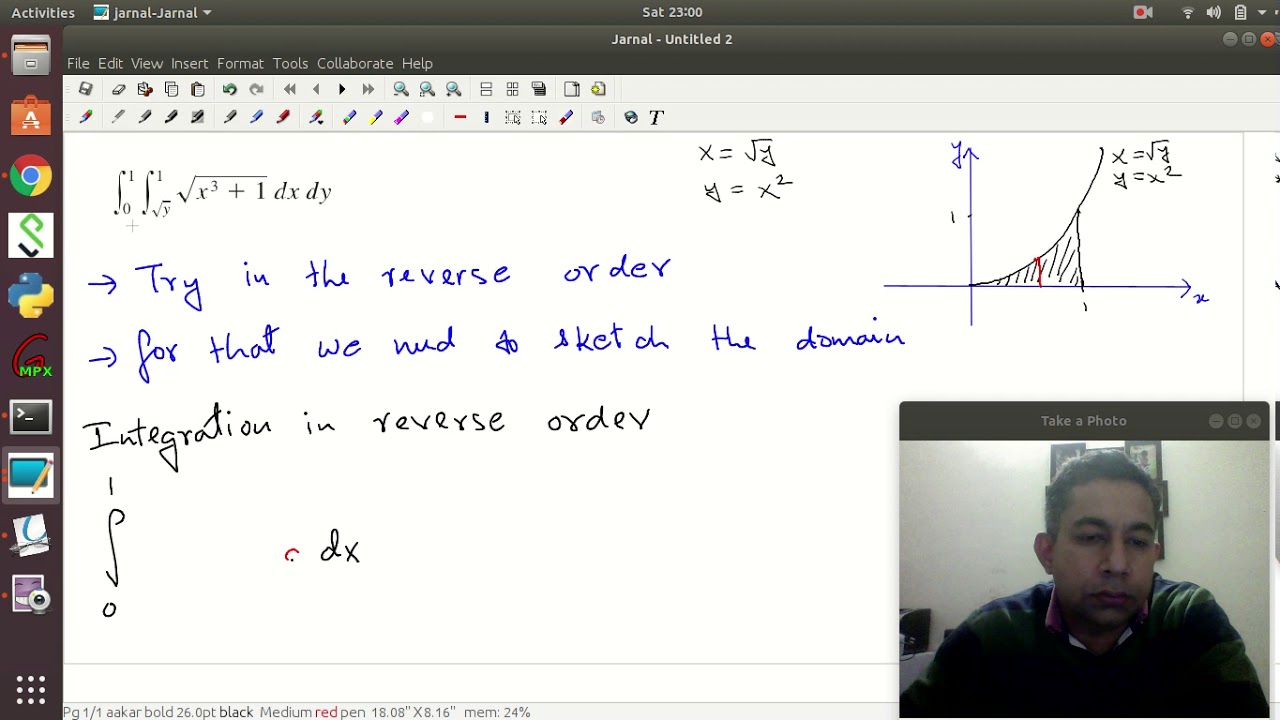 Activities jarnal-Jarnal Sat 23:00
Jarnal - Untitled 2
File Edit View Insert Format Tools Collaborate Help
∫₀¹ ∫_{√y}¹ √(x³ + 1) dx dy
x = √y
y = x²
y
x = √y
y = x²
1
1
x
→ Try in the reverse order
→ for that we need to sketch the domain
Integration in reverse order
1
∫ dx
0
Take a Photo
A
MPX
T
Pg 1/1 aakar bold 26.0pt black Medium red pen 18.08" X 8.16" mem: 24%